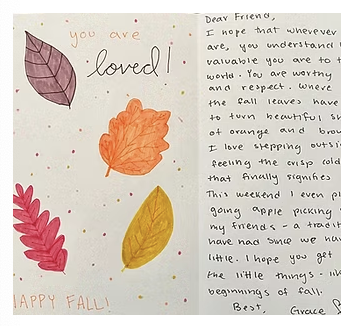 you are
loved!
HAPPY FALL!
Dear Friend,
I hope that wherever
are, you understand
valuable you are to t
world. You are worthy
and respect. Where
the fall leaves have
to turn beautiful sh
of orange and brow
I love stepping outsi
feeling the crisp cold
that finally signifies
This weekend I even pl
going apple picking
my friends - a tradit
have had since we hav
little. I hope you get
the little things - lik
beginnings of fall.
Best,
Grace